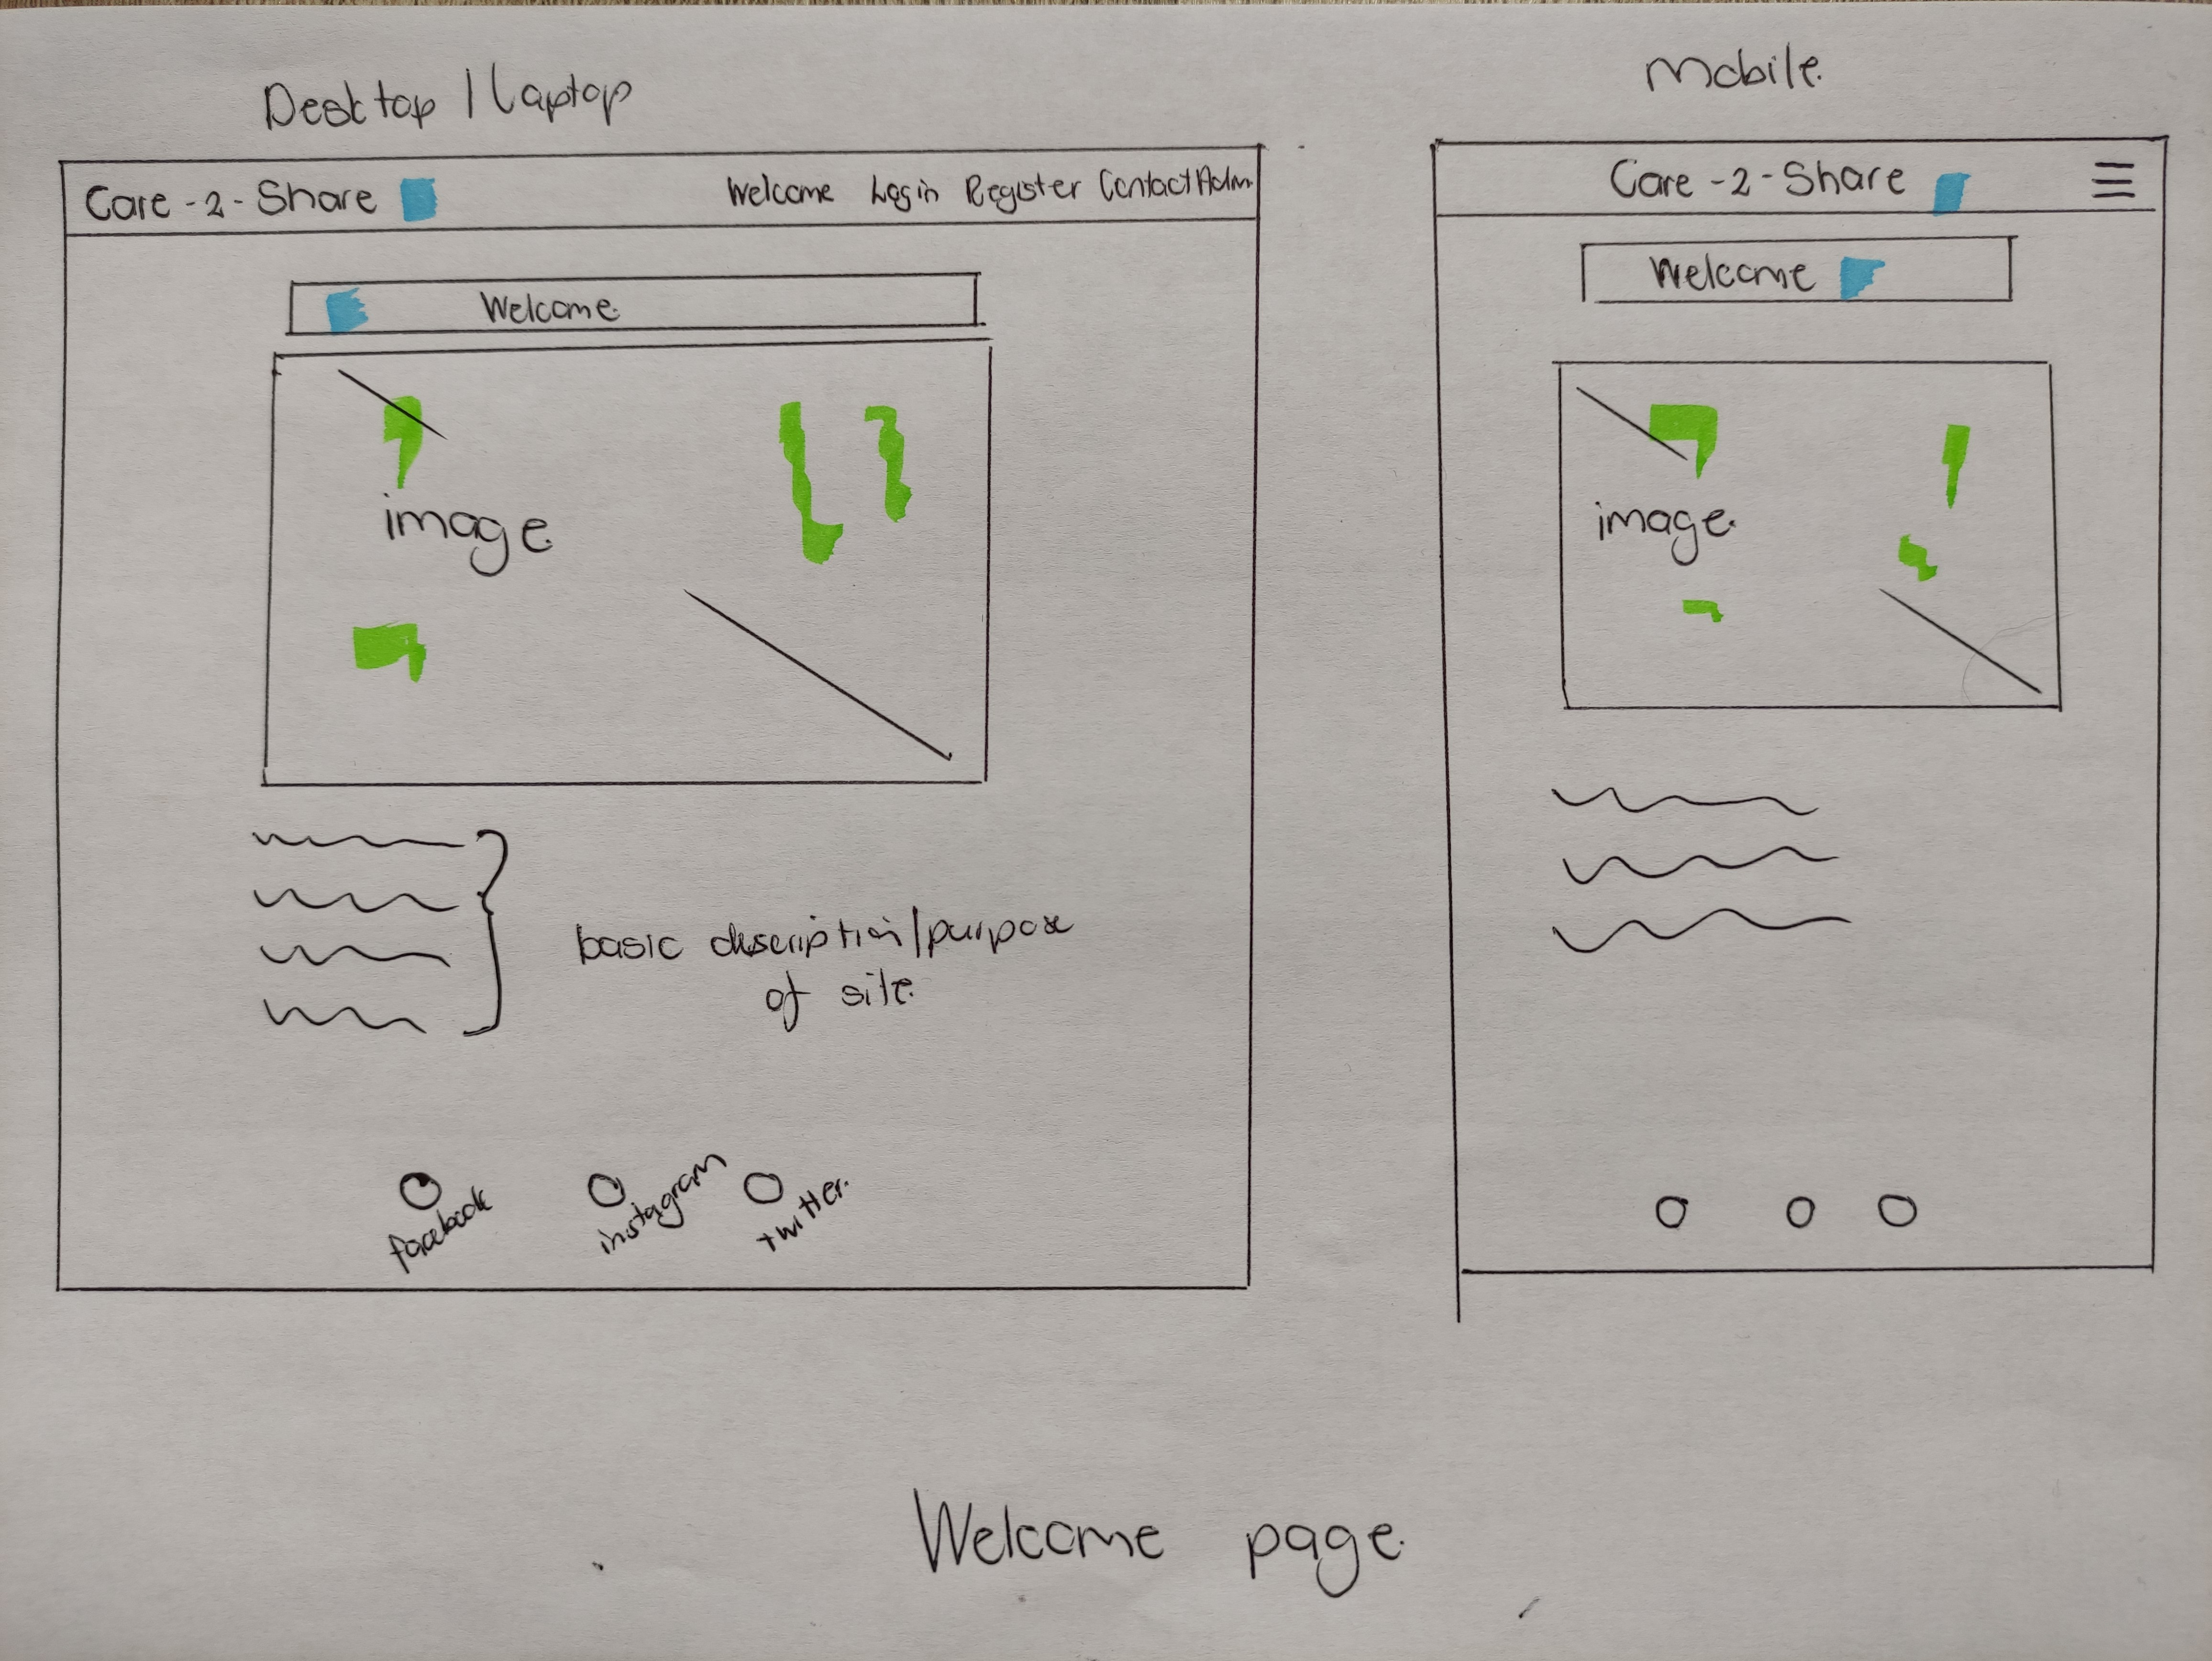 Desktop / Laptop
Care - 2 - Share
Welcome Login Register Contact Adm
Welcome
image
basic description/purpose
of site
facebook
instagram
twitter
Mobile
Care - 2 - Share
Welcome
image
Welcome page